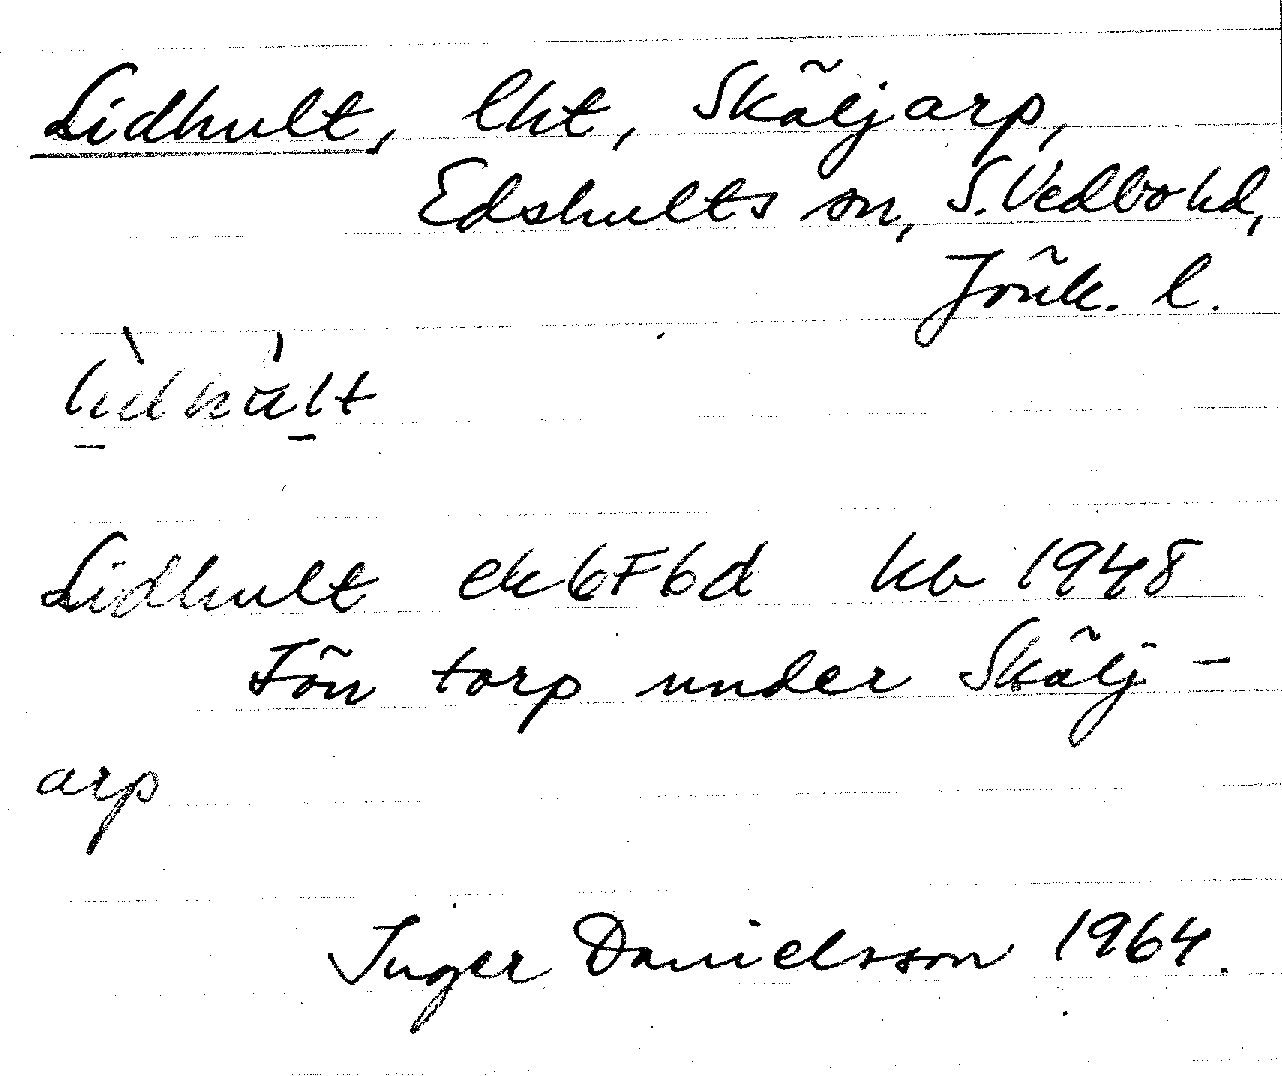 Lidhult, lht, Skäljarp,
Edshults sn, S. Vedbo hd,
Jönk. l.
Lidhult ek 6F6d kb 1948
Förr torp under Skälj-
arp
Inger Danielsson 1964.